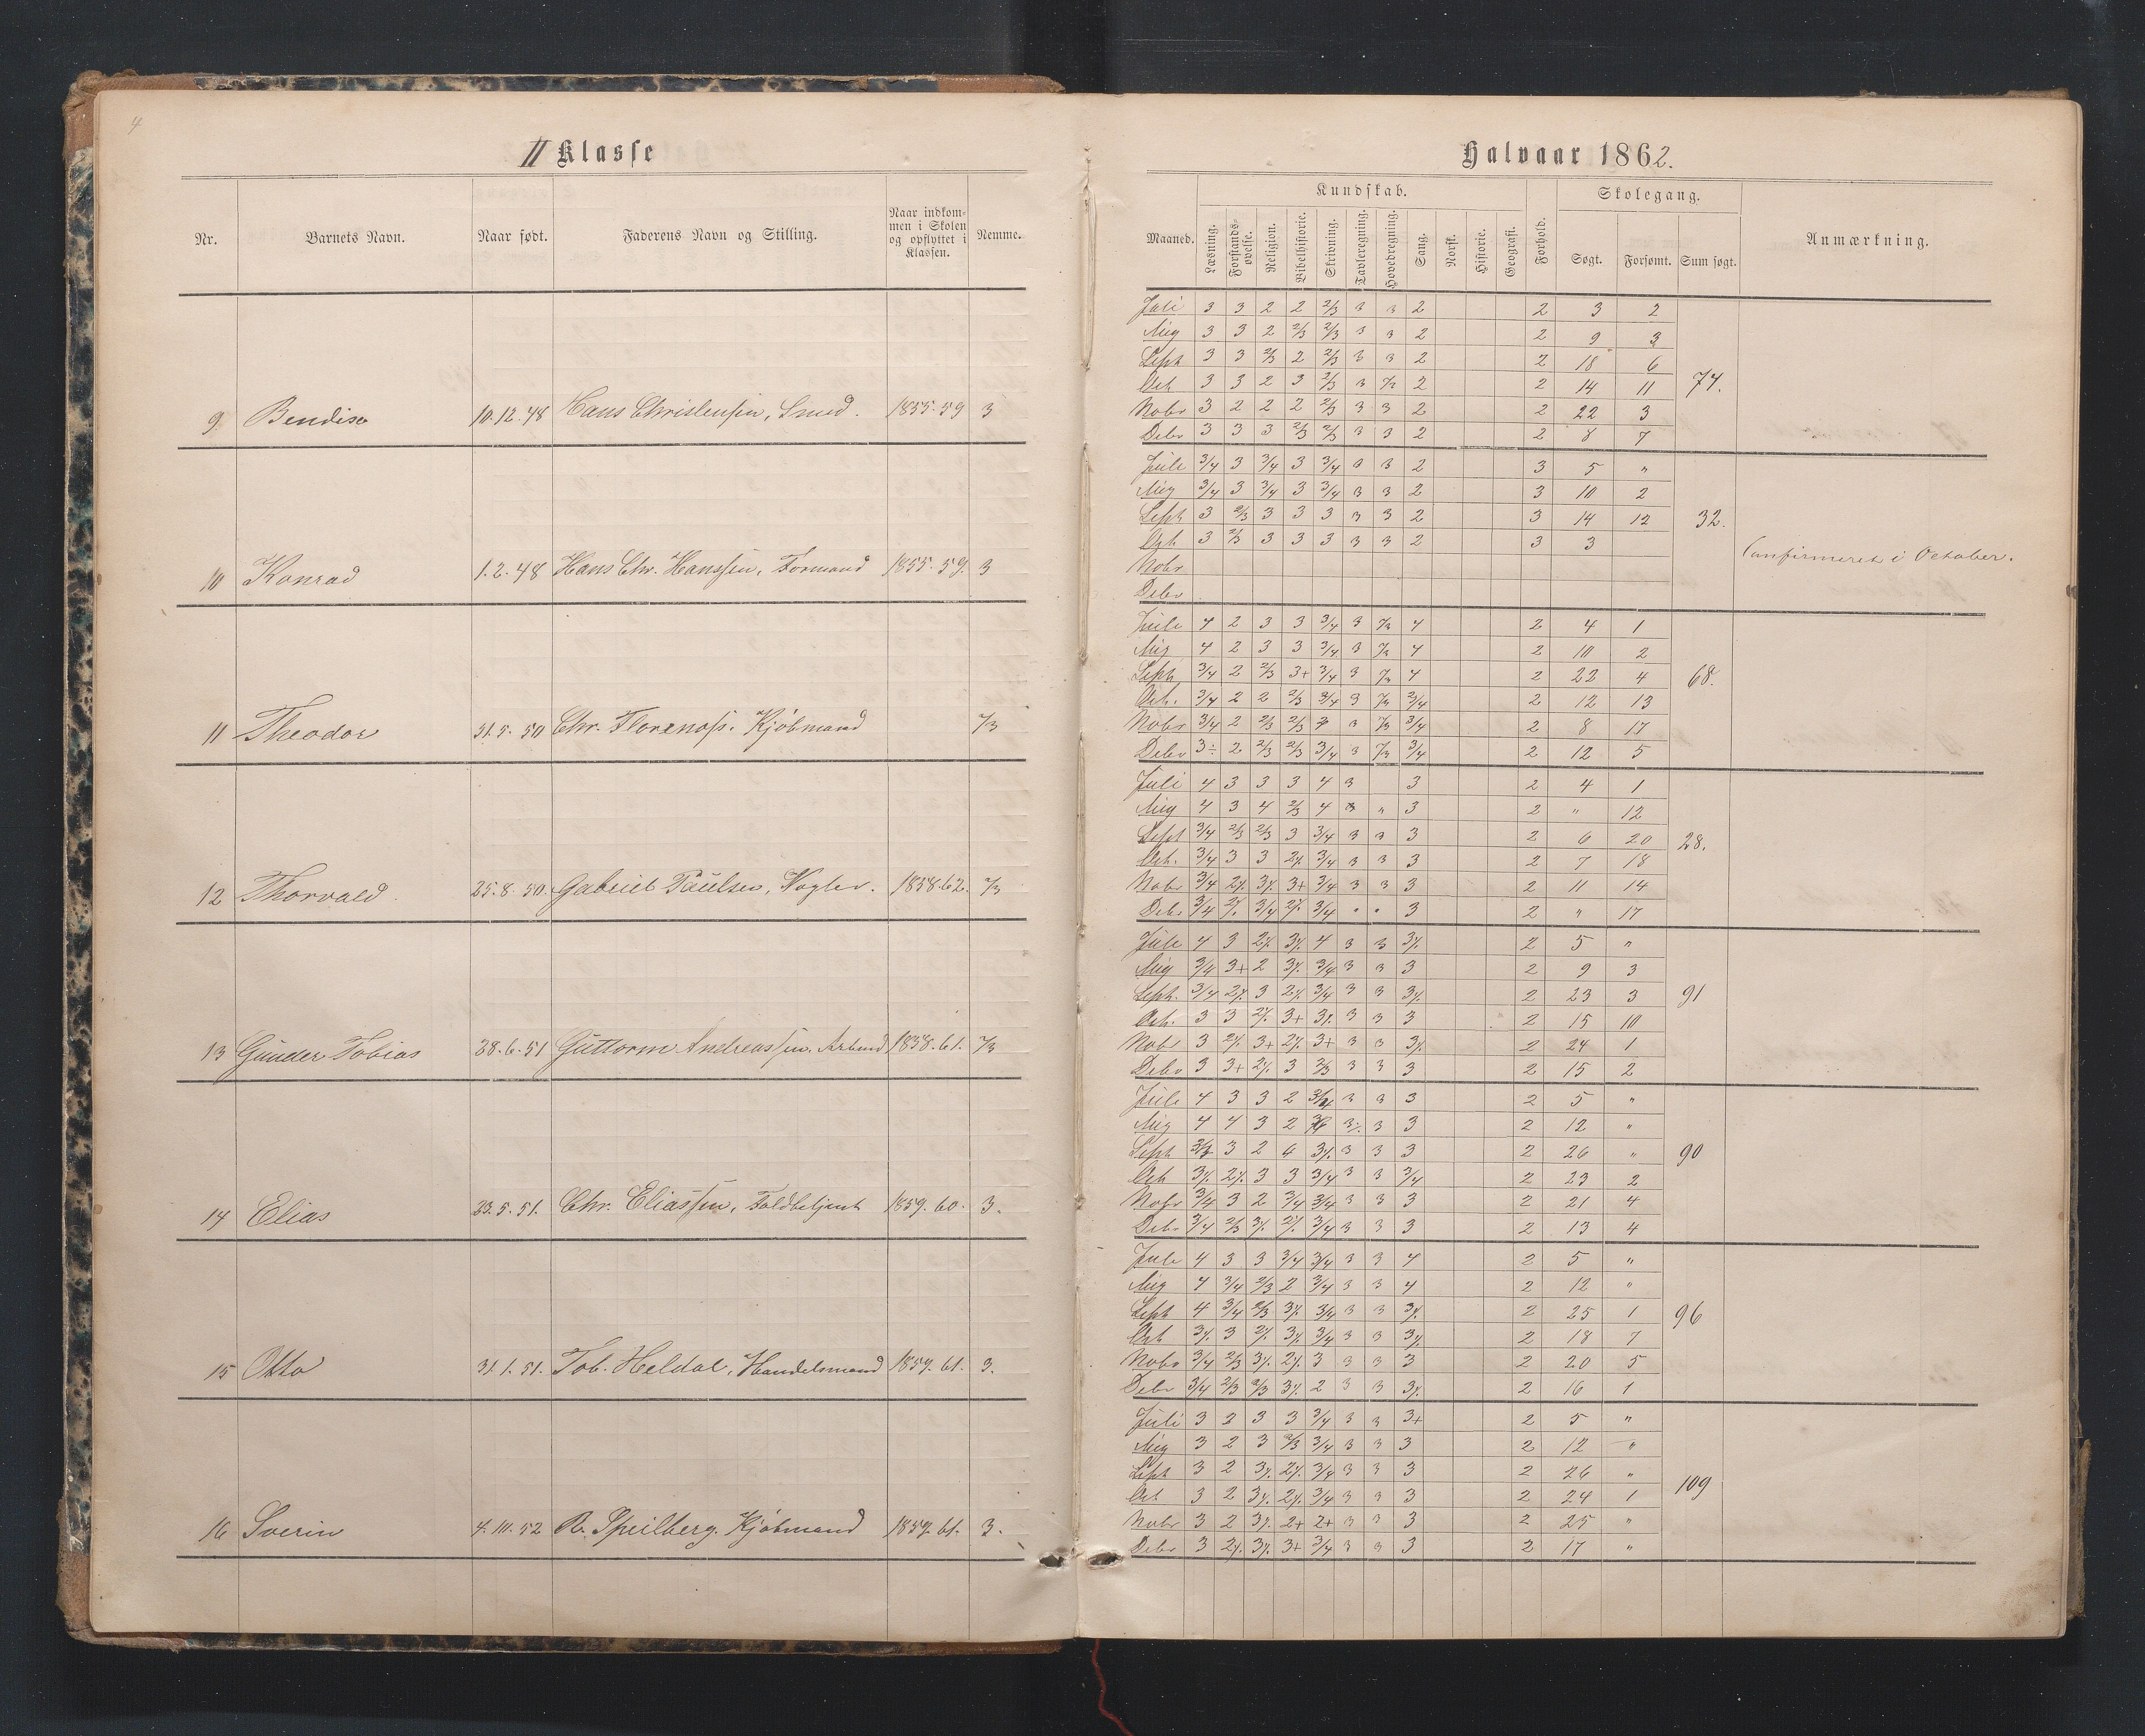 4
II Klasse
Nr. Barnets Navn. Naar født. Faderens Navn og Stilling. Naar indkom-
men i Skolen
og opflyttet i
Klassen. Nemme.
9 Bendix 10.12.48 Hans Christensen, Smed. 1855.59 3
10 Konrad 1.2.48 Hans Chr. Hanssen, Formand 1855.59. 3
11 Theodor 31.5.50 Chr. Florenæs. Kjøbmand 2/3
12 Thorvald 25.8.50. Gabriel Paulsen, Vogter. 1858.62. 2/3
13 Gunder Tobias 28.6.51 Guttorm Andreassen, Arbmd 1858.61. 2/3
14 Elias 23.5.51. Chr. Eliassen, Toldbetjent 1859.60. 3.
15 Otto 31.1.51. Tob. Heldal, Handelsmand 1859.61. 3.
16 Sverin 4.10.52 R. Speilberg. Kjøbmand 1859.61. 3.
Halvaar 1862.
Kundskab. Skolegang.
Maaned. Læsning. Forstands-
øvelse. Religion. Bibelhistorie. Skrivning. Tavleregning. Hovedregning. Sang. Norsk. Historie. Geografi. Forhold. Søgt. Forsømt. Sum søgt. Anmærkning.
Juli 3 3 2 2 2/3 3 3 2 2 3 2
Aug 3 3 2 2/3 2/3 3 3 2 2 9 3
Sept 3 3 2/3 2 2/3 3 3 2 2 18 6
Oct 3 3 2 3 2/3 3 2/3 2 2 14 11 74.
Nobr 3 2 2 2 2/3 3 3 2 2 22 3
Debr 3 3 3 2/3 2/3 3 3 2 2 8 7
Juli 3/4 3 3/4 3 3/4 3 3 2 3 5 "
Aug 3/4 3 3/4 3 3/4 3 3 2 3 10 2
Sept 3 2/3 3 3 3 3 3 2 3 14 12 32.
Oct 3 2/3 3 3 3 3 3 2 3 3 Confirmeret i October.
Nobr
Debr
Juli 4 2 3 3 3/4 3 2/3 4 2 4 1
Aug 4 2 3 3 3/4 3 2/3 4 2 10 2
Sept 3/4 2 2/3 3+ 3/4 3 2/3 4 2 22 4 68.
Oct. 3/4 2 2 2/3 3/4 3 2/3 3/4 2 12 13
Nobr 3/4 2 2/3 2/3 3 2/3 3/4 2 8 17
Debr 3÷ 2 2/3 2/3 3/4 3 2/3 3/4 2 12 5
Juli 4 3 3 3 4 3 3 2 4 1
Aug 4 3 4 2/3 4 " 3 2 " 12
Sept 3/4 2/3 2/3 3 3/4 3 3 3 2 6 20 28.
Oct. 3/4 3 3 2÷ 3/4 3 3 3 2 7 18
Nobr 3/4 2÷ 3÷ 3+ 3/4 3 3 3 2 11 14
Debr 3/4 2÷ 3/4 2÷ 3/4 " " 3 2 " 17
Juli 4 3 2÷ 3÷ 4 3 3 3÷ 2 5 "
Aug 3/4 3+ 2 3÷ 3/4 3 3 3 2 9 3
Sept. 3/4 2÷ 3 2÷ 3/4 3 3 3÷ 2 23 3 91
Oct. 3 3 2÷ 3+ 3÷ 3 3 3 2 15 10
Nobr 3 2÷ 3+ 2÷ 3+ 3 3 3÷ 2 24 1
Debr 3 3+ 2÷ 3 2/3 3 3 3 2 15 2
Juli 4 3 3 2 3/4 3 3 3 2 5 "
Aug 4 4 3 2 3÷ 3 3 2 12 "
Sept 3 2 3÷ 3 3 3 2 26 " 90
Oct 3÷ 2÷ 3 3 3/4 3 3 3/4 2 23 2
Nobr 3/4 3 2 3/4 3/4 3 3 3 2 21 4
Debr 3/4 2/3 3÷ 2÷ 3/4 3 3 3 2 13 4
Juli 4 3 3 3/4 3/4 3 3 4 2 5 "
Aug 4 3/4 2/3 2 3/4 3 3 4 2 12 "
Sept 4 3/4 2/3 3÷ 3/4 3 3 3÷ 2 25 1 96
Oct 3÷ 3 2÷ 3÷ 3/4 3 3 3÷ 2 18 7
Nobr 3/4 2/3 3÷ 2÷ 3 3 3 3 2 20 5
Debr 3/4 2/3 2/3 3÷ 2 3 3 3÷ 2 16 1
Juli 3 2 3 3 3/4 3 3 3+ 2 5 "
Aug 3 2 3 2/3 3/4 3 3 3 2 12 "
Sept 3 2 3÷ 2÷ 3/4 3 3 3 2 26 " 109
Oct 3 2 3÷ 2÷ 3/4 3 3 3 2 24 1
Nobr 3 2 3÷ 2+ 2+ 3 3 3 2 25 "
Debr 3 2÷ 3÷ 3+ 3/4 3 3 3 2 17 "